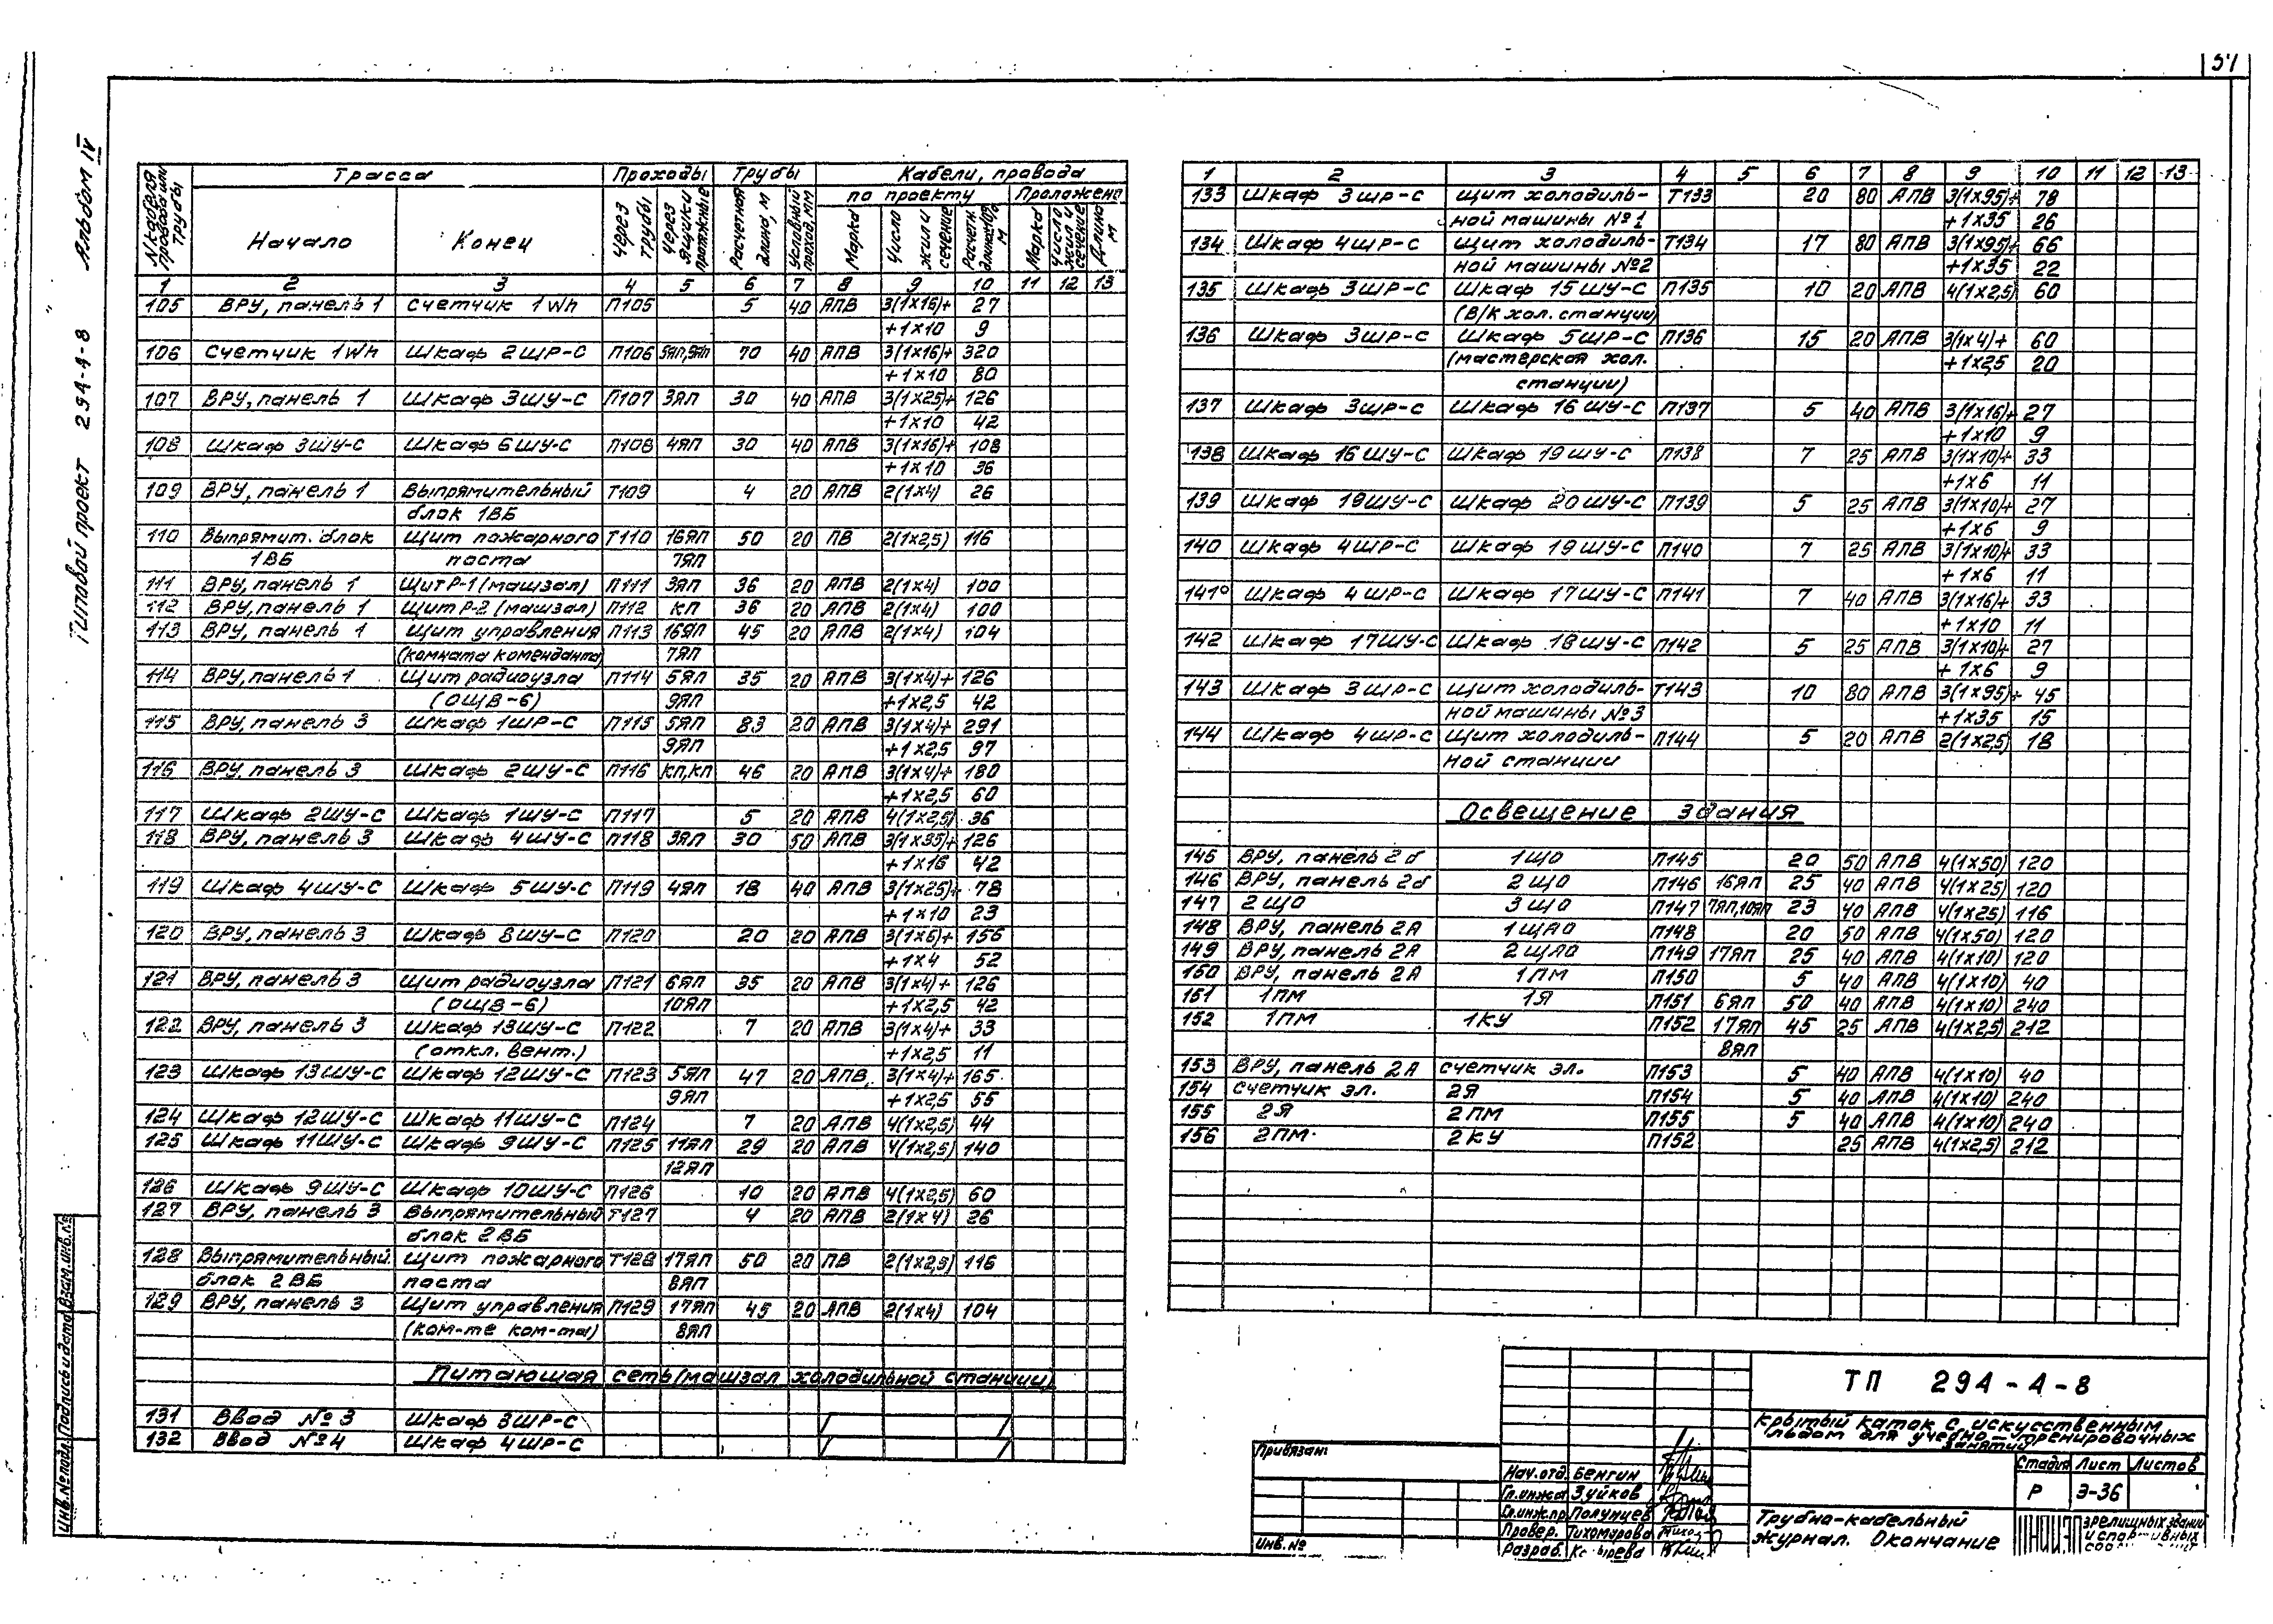 37
Альбом IV
Типовой проект 294-4-8
N кабеля провода или трубы | Трасса | Проходы | Трубы | Кабели, провода
по проекту | Проложено
Начало | Конец | Через трубы | Через ящики протяжные | Расчетная длина, м | Условный проход, мм | Марка | Число жил и сечение | Расчетн. длина, м | Марка | Число жил и сечение | Длина м
1 2 3 4 5 6 7 8 9 10 11 12 13
105 ВРУ, панель 1 Счетчик 1Wh П105 5 40 АПВ 3(1×16)+ 27
+1×10 9
106 Счетчик 1Wh Шкаф 2ШР-С П106 5ЯП,9ЯП 70 40 АПВ 3(1×16)+ 320
+1×10 80
107 ВРУ, панель 1 Шкаф 3ШУ-С П107 3ЯП 30 40 АПВ 3(1×25)+ 126
+1×10 42
108 Шкаф 3ШУ-С Шкаф 6ШУ-С П108 4ЯП 30 40 АПВ 3(1×16)+ 108
+1×10 36
109 ВРУ, панель 1 Выпрямительный Т109 4 20 АПВ 2(1×4) 26
блок 1ВБ
110 Выпрямит. блок Щит пожарного Т110 16ЯП 50 20 ПВ 2(1×2,5) 116
1ВБ поста 7ЯП
111 ВРУ, панель 1 Щит Р-1 (машзал) П111 3ЯП 36 20 АПВ 2(1×4) 100
112 ВРУ, панель 1 Щит Р-2 (машзал) П112 КП 36 20 АПВ 2(1×4) 100
113 ВРУ, панель 1 Щит управления П113 16ЯП 45 20 АПВ 2(1×4) 104
(комната коменданта) 7ЯП
114 ВРУ, панель 1 Щит радиоузла П114 5ЯП 35 20 АПВ 3(1×4)+ 126
(ОЩВ-6) 9ЯП +1×2,5 42
115 ВРУ, панель 3 Шкаф 1ШР-С П115 5ЯП 83 20 АПВ 3(1×4)+ 291
9ЯП +1×2,5 97
116 ВРУ, панель 3 Шкаф 2ШУ-С П116 КП,КП 46 20 АПВ 3(1×4)+ 180
+1×2,5 60
117 Шкаф 2ШУ-С Шкаф 1ШУ-С П117 5 20 АПВ 4(1×2,5) 36
118 ВРУ, панель 3 Шкаф 4ШУ-С П118 3ЯП 30 50 АПВ 3(1×35)+ 126
+1×16 42
119 Шкаф 4ШУ-С Шкаф 5ШУ-С П119 4ЯП 18 40 АПВ 3(1×25)+ 78
+1×10 23
120 ВРУ, панель 3 Шкаф 8ШУ-С П120 20 20 АПВ 3(1×6)+ 156
+1×4 52
121 ВРУ, панель 3 Щит радиоузла П121 6ЯП 35 20 АПВ 3(1×4)+ 126
(ОЩВ-6) 10ЯП +1×2,5 42
122 ВРУ, панель 3 Шкаф 13ШУ-С П122 7 20 АПВ 3(1×4)+ 33
(откл. вент.) +1×2,5 11
123 Шкаф 13ШУ-С Шкаф 12ШУ-С П123 5ЯП 47 20 АПВ 3(1×4)+ 165
9ЯП +1×2,5 55
124 Шкаф 12ШУ-С Шкаф 11ШУ-С П124 7 20 АПВ 4(1×2,5) 44
125 Шкаф 11ШУ-С Шкаф 9ШУ-С П125 11ЯП 29 20 АПВ 4(1×2,5) 140
12ЯП
126 Шкаф 9ШУ-С Шкаф 10ШУ-С П126 10 20 АПВ 4(1×2,5) 60
127 ВРУ, панель 3 Выпрямительный Т127 4 20 АПВ 2(1×4) 26
блок 2ВБ
128 Выпрямительный Щит пожарного Т128 17ЯП 50 20 ПВ 2(1×2,5) 116
блок 2ВБ поста 8ЯП
129 ВРУ, панель 3 Щит управления П129 17ЯП 45 20 АПВ 2(1×4) 104
(ком-те ком-та) 8ЯП
Питающая сеть (машзал холодильной станции)
131 Ввод №3 Шкаф 3ШР-С
132 Ввод №4 Шкаф 4ШР-С
1 2 3 4 5 6 7 8 9 10 11 12 13
133 Шкаф 3ШР-С Щит холодиль- Т133 20 80 АПВ 3(1×95)+ 78
ной машины №1 +1×35 26
134 Шкаф 4ШР-С Щит холодиль- Т134 17 80 АПВ 3(1×95)+ 66
ной машины №2 +1×35 22
135 Шкаф 3ШР-С Шкаф 15ШУ-С П135 10 20 АПВ 4(1×2,5) 60
(В/К хол. станции)
136 Шкаф 3ШР-С Шкаф 5ШР-С П136 15 20 АПВ 3(1×4)+ 60
(мастерская хол. +1×2,5 20
станции)
137 Шкаф 3ШР-С Шкаф 16ШУ-С П137 5 40 АПВ 3(1×16)+ 27
+1×10 9
138 Шкаф 16ШУ-С Шкаф 19ШУ-С П138 7 25 АПВ 3(1×10)+ 33
+1×6 11
139 Шкаф 19ШУ-С Шкаф 20ШУ-С П139 5 25 АПВ 3(1×10)+ 27
+1×6 9
140 Шкаф 4ШР-С Шкаф 19ШУ-С П140 7 25 АПВ 3(1×10)+ 33
+1×6 11
141 Шкаф 4ШР-С Шкаф 17ШУ-С П141 7 40 АПВ 3(1×16)+ 33
+1×10 11
142 Шкаф 17ШУ-С Шкаф 18ШУ-С П142 5 25 АПВ 3(1×10)+ 27
+1×6 9
143 Шкаф 3ШР-С Щит холодиль- Т143 10 80 АПВ 3(1×95)+ 45
ной машины №3 +1×35 15
144 Шкаф 4ШР-С Щит холодиль- П144 5 20 АПВ 2(1×2,5) 18
ной станции
Освещение здания
145 ВРУ, панель 2б 1ЩО П145 20 50 АПВ 4(1×50) 120
146 ВРУ, панель 2б 2ЩО П146 16ЯП 25 40 АПВ 4(1×25) 120
147 2ЩО 3ЩО П147 7ЯП,10ЯП 23 40 АПВ 4(1×25) 116
148 ВРУ, панель 2А 1ЩАО П148 20 50 АПВ 4(1×50) 120
149 ВРУ, панель 2А 2ЩАО П149 17ЯП 25 40 АПВ 4(1×10) 120
150 ВРУ, панель 2А 1ПМ П150 5 40 АПВ 4(1×10) 40
151 1ПМ 1Я П151 6ЯП 50 40 АПВ 4(1×10) 240
152 1ПМ 1КУ П152 17ЯП 45 25 АПВ 4(1×2,5) 212
8ЯП
153 ВРУ, панель 2А счетчик эл. П153 5 40 АПВ 4(1×10) 40
154 счетчик эл. 2Я П154 5 40 АПВ 4(1×10) 240
155 2Я 2ПМ П155 5 40 АПВ 4(1×10) 240
156 2ПМ 2КУ П152 25 АПВ 4(1×2,5) 212
ТП 294-4-8
Крытый каток с искусственным
льдом для учебно-тренировочных
занятий
Стадия Лист Листов
Р Э-36
Трубно-кабельный
журнал. Окончание
зрелищных зданий
и спортивных
Привязан:
Инв.№
Нач.отд. Бенгин
Гл.инж.о Зуйков
Гл.инж.пр Полунцев
Провер. Тихомирова
Разраб.
Инв.№ подл. Подпись и дата Взам.инв.№